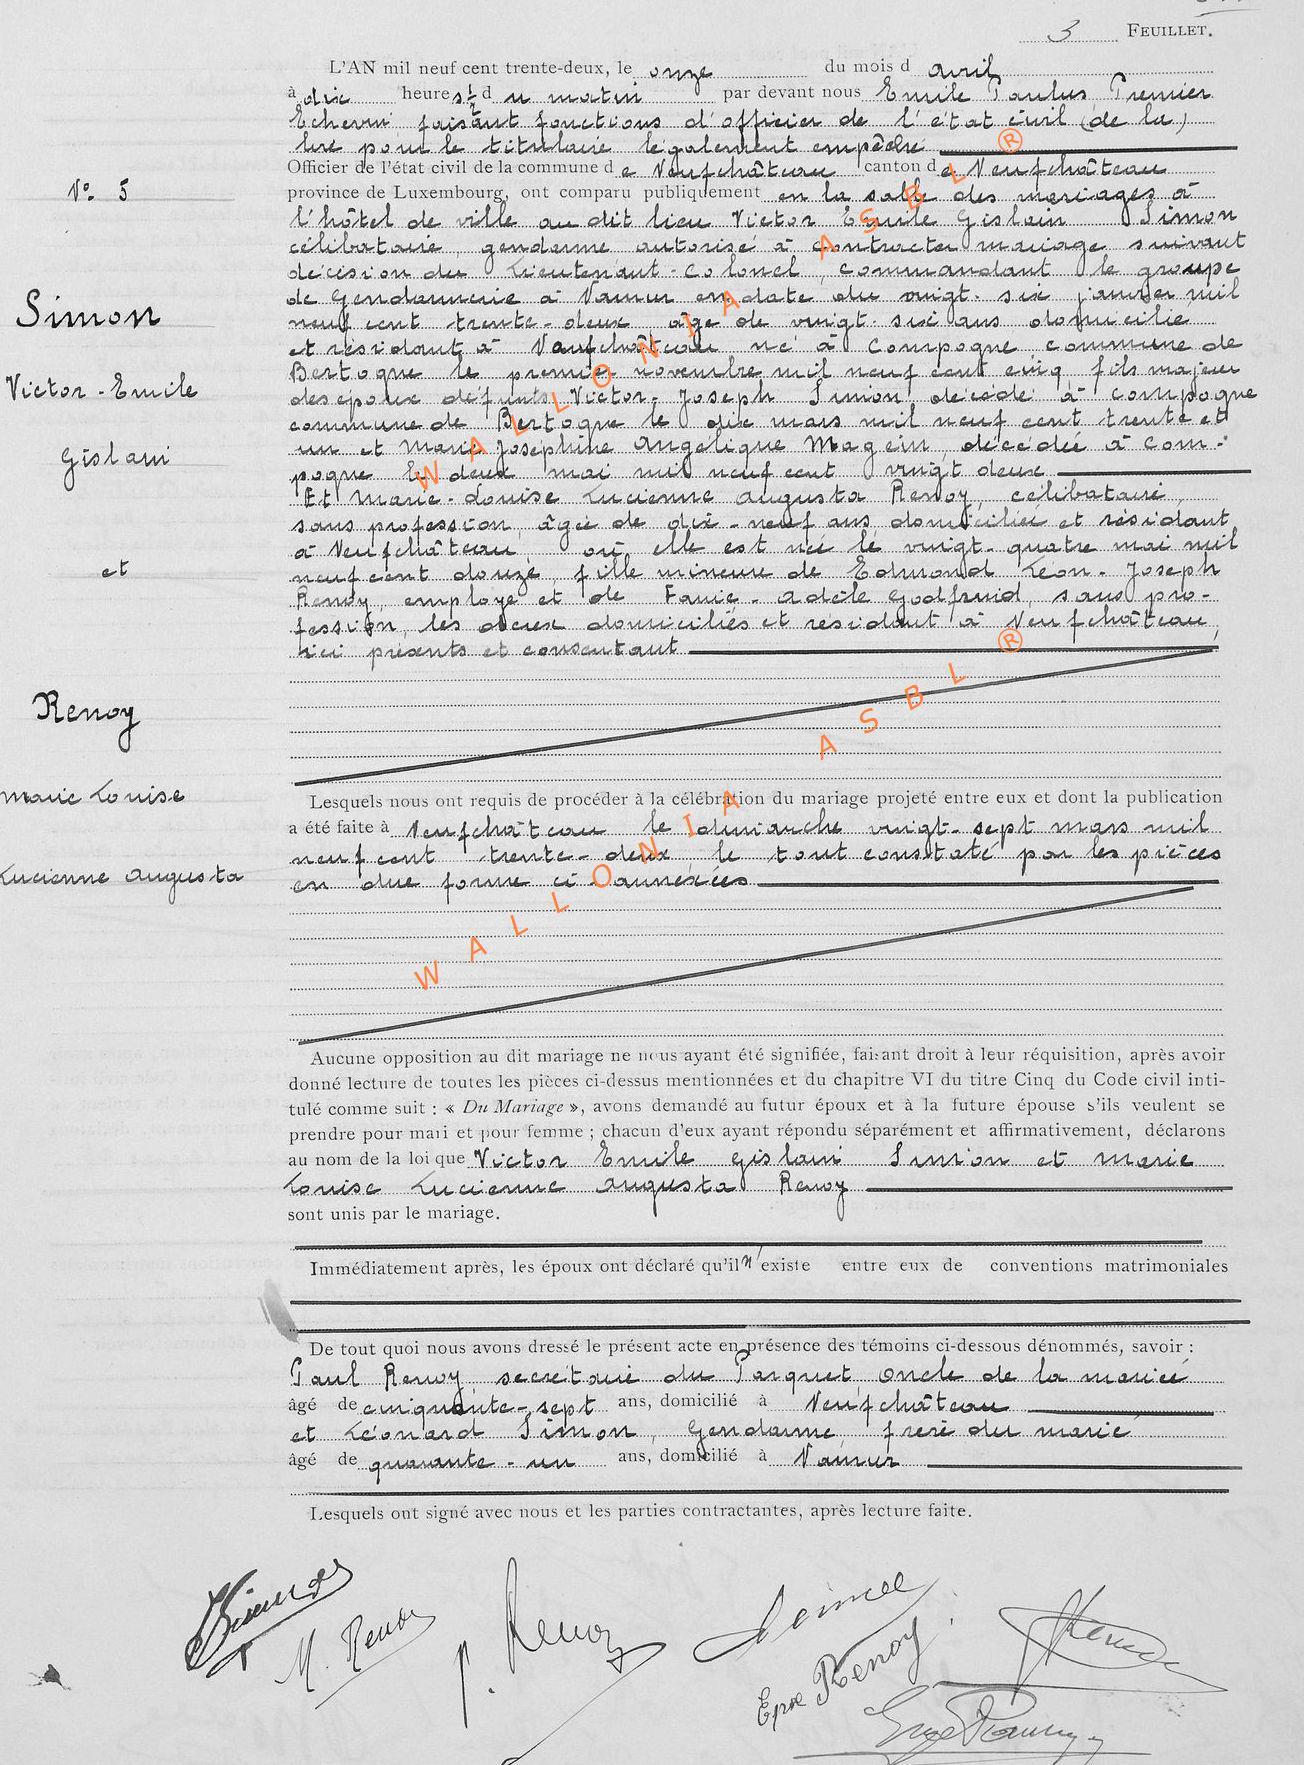 3 FEUILLET.
L'AN mil neuf cent trente-deux, le onze du mois d avril
à dix heures ½ d u matin par devant nous Emile Paulus, Premier
Echevin, faisant fonctions d'officier de l'état civil (de la)
lire pour le titulaire légalement empêché
Officier de l'état civil de la commune d e Neufchâteau canton d e Neufchâteau
province de Luxembourg, ont comparu publiquement en la salle des mariages à
l'hôtel de ville au dit lieu Victor Emile Gislain Simon
célibataire, gendarme autorisé à contracter mariage suivant
décision du Lieutenant-Colonel, commandant le groupe
de Gendarmerie à Namur en date du vingt-six janvier mil
neuf cent trente-deux âgé de vingt-six ans domicilié
et résidant à Neufchâteau né à Compogne, commune de
Bertogne le premier novembre mil neuf cent cinq fils majeur
des époux défunts Victor-Joseph Simon décédé à Compogne
commune de Bertogne le dix mars mil neuf cent trente et
un et Marie Joséphine Angélique Magein, décédée à Com-
pogne le deux mai mil neuf cent vingt deux
Et Marie-Louise Lucienne Augusta Renoy, célibataire,
sans profession, âgée de dix-neuf ans domiciliée et résidant
à Neufchâteau, où elle est née le vingt-quatre mai mil
neuf cent douze, fille mineure de Edmond Léon-Joseph
Renoy, employé et de Fanie-Adèle Godfruid, sans pro-
fession, les deux domiciliés et résidant à Neufchâteau,
ici présents et consentant
N° 5
Simon
Victor-Emile
Gislain
et
Renoy
Marie Louise
Lucienne Augusta
Lesquels nous ont requis de procéder à la célébration du mariage projeté entre eux et dont la publication
a été faite à Neufchâteau le dimanche vingt-sept mars mil
neuf cent trente-deux, le tout constaté par les pièces
en due forme ci-annexées
Aucune opposition au dit mariage ne nous ayant été signifiée, faisant droit à leur réquisition, après avoir
donné lecture de toutes les pièces ci-dessus mentionnées et du chapitre VI du titre Cinq du Code civil inti-
tulé comme suit : « Du Mariage », avons demandé au futur époux et à la future épouse s'ils veulent se
prendre pour mari et pour femme ; chacun d'eux ayant répondu séparément et affirmativement, déclarons
au nom de la loi que Victor Emile Gislain Simon et Marie
Louise Lucienne Augusta Renoy
sont unis par le mariage.
Immédiatement après, les époux ont déclaré qu'il n'existe entre eux de conventions matrimoniales
De tout quoi nous avons dressé le présent acte en présence des témoins ci-dessous dénommés, savoir :
Paul Renoy, secrétaire du Parquet, oncle de la mariée
âgé de cinquante-sept ans, domicilié à Neufchâteau
et Léonard Simon, Gendarme, frère du marié
âgé de quarante-un ans, domicilié à Namur
Lesquels ont signé avec nous et les parties contractantes, après lecture faite.
M. Renoy
P. Renoy
Epse Renoy
WALLONIA ASBL ®
WALLONIA ASBL ®